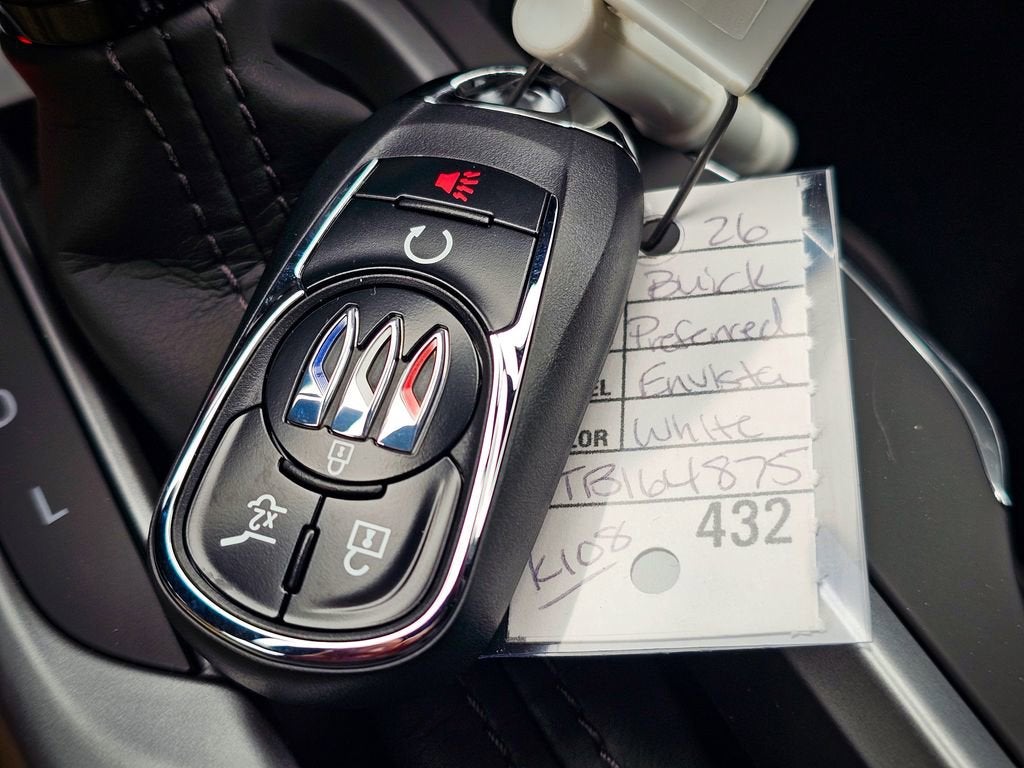 26
Buick
Preferred
EL Envista
LOR White
TB164875
432
K108
x2
L